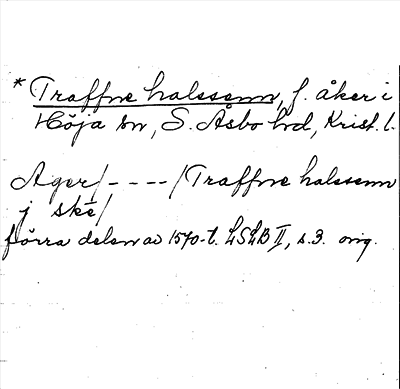 * Traffne halssenn, f. åker i
Höja sn, S. Åsbo hd, Krist. l.
Ager/----/Traffne halssenn
j ske/
förra delen av 1570-t. LSLB II, s.3. orig.